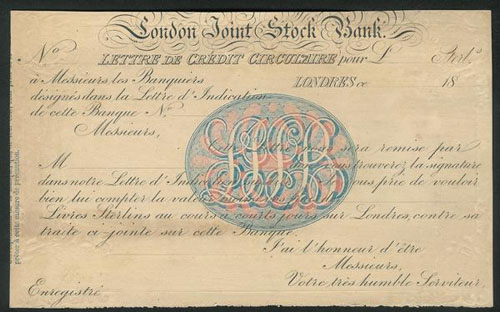 London Joint Stock Bank.
No
LETTRE DE CRÉDIT CIRCULAIRE pour £ Sterl.
à Messieurs les Banquiers LONDRES ce 18
désignés dans la Lettre d'Indication
de cette Banque No
Messieurs,
Cette Lettre vous sera remise par
M dont vous trouverez la signature
dans notre Lettre d'Indication vous prie de vouloir
bien lui compter la valeur
Livres Sterlins au cours à courts jours sur Londres, contre sa
traite ci-jointe sur cette Banque
J'ai l'honneur d'être
Messieurs,
Votre très humble Serviteur,
Enregistré